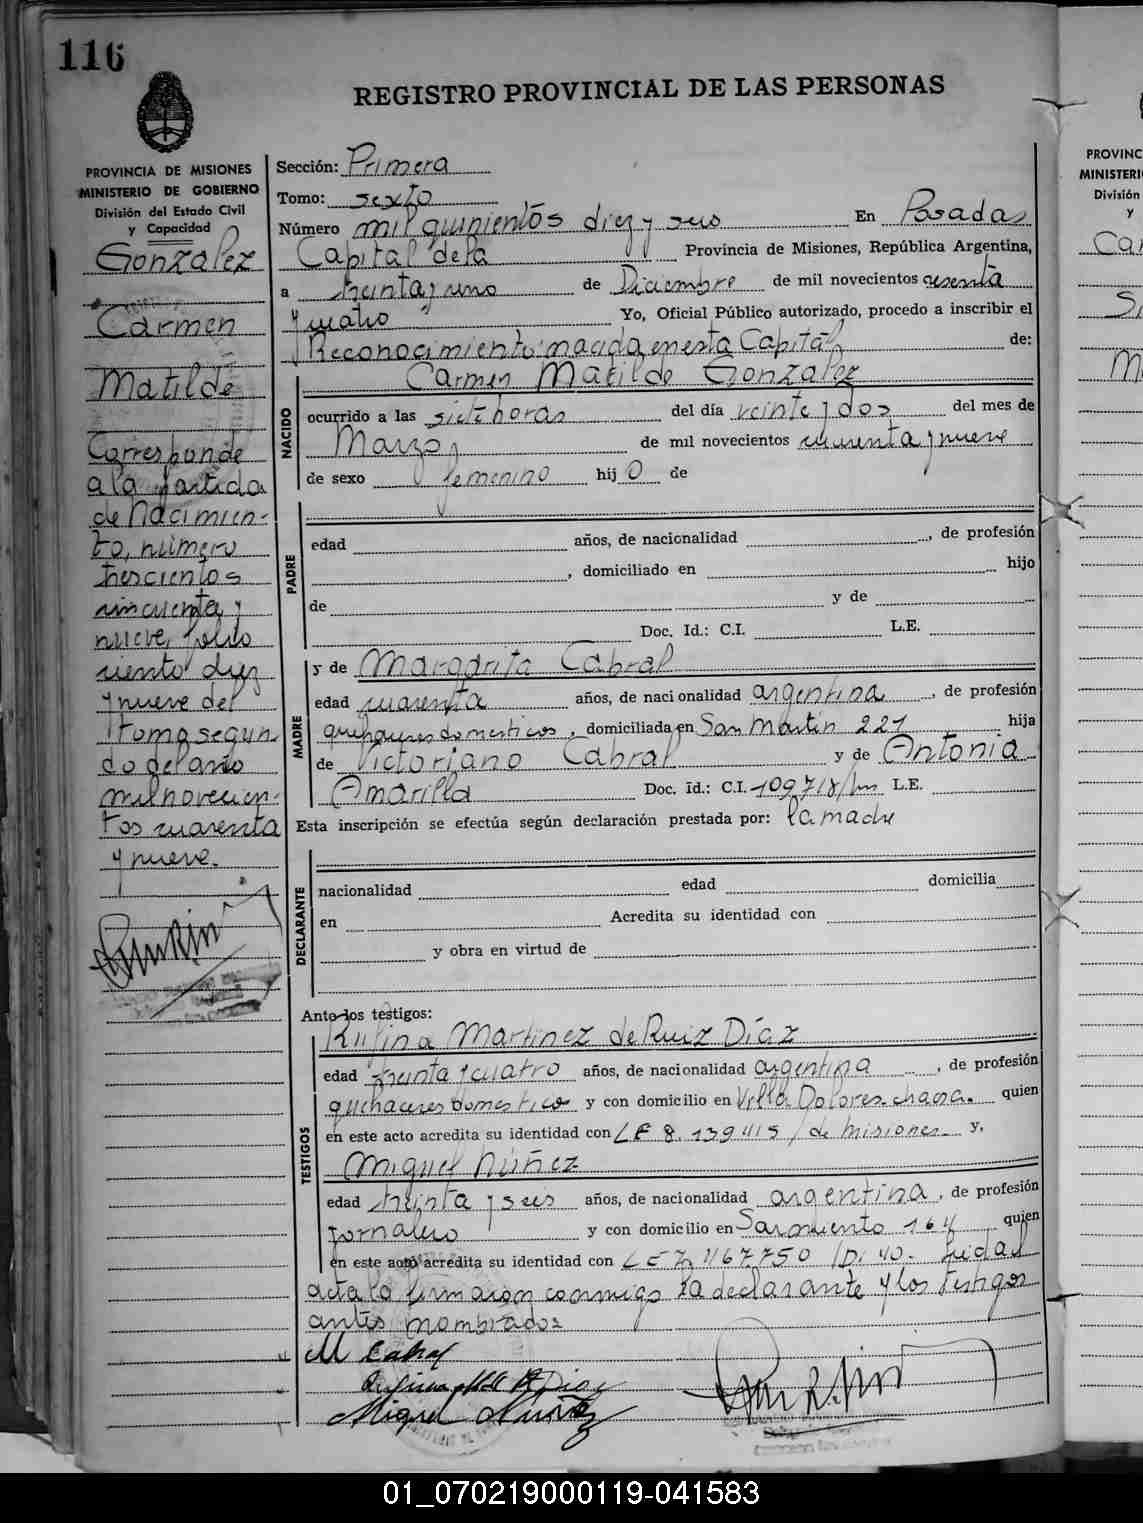 116
REGISTRO PROVINCIAL DE LAS PERSONAS
PROVINCIA DE MISIONES
MINISTERIO DE GOBIERNO
División del Estado Civil
y Capacidad
Gonzalez
Carmen
Matilde
Corresponde
a la partida
de Nacimien-
to, número
trescientos
cincuenta y
nueve, folio
ciento diez
y nueve del
tomo segun-
do del año
mil novecien-
tos cuarenta
y nueve.
Sección: Primera
Tomo: sexto
Número mil quinientos diez y seis En Posadas
Capital de la Provincia de Misiones, República Argentina,
a treinta y uno de Diciembre de mil novecientos sesenta
y cuatro Yo, Oficial Público autorizado, procedo a inscribir el
Reconocimiento: nacida en esta Capital de:
Carmen Matilde Gonzalez
NACIDO
ocurrido a las siete horas del día veinte y dos del mes de
Marzo de mil novecientos cuarenta y nueve
de sexo femenino hij o de
PADRE
edad años, de nacionalidad , de profesión
, domiciliado en hijo
de y de
Doc. Id.: C.I. L.E.
MADRE
y de Margarita Cabral
edad cuarenta años, de nacionalidad argentina , de profesión
quehaceres domesticos , domiciliada en San Martin 221 hija
de Victoriano Cabral y de Antonia
Amarilla Doc. Id.: C.I. 109718/ L.E.
Esta inscripción se efectúa según declaración prestada por: la madre
DECLARANTE
nacionalidad edad domicilia
en Acredita su identidad con
y obra en virtud de
Ante los testigos:
Rufina Martinez de Ruiz Díaz
TESTIGOS
edad treinta y cuatro años, de nacionalidad argentina , de profesión
quehaceres domestico y con domicilio en Villa Dolores. chacra. quien
en este acto acredita su identidad con LE 8.139415/ de Misiones. y,
Miguel Núñez
edad treinta y seis años, de nacionalidad argentina , de profesión
jornalero y con domicilio en Sarmiento 164 quien
en este acto acredita su identidad con LE 7.467.750 /D. 40.
acta la firmaron conmigo la declarante y los testigos
antes nombrados
M Cabral
Miguel Nuñez
PROVINC
MINISTERI
División
y
01_070219000119-041583